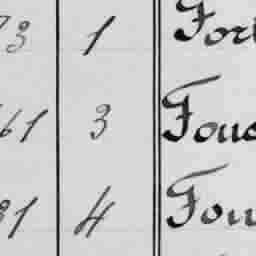 73 1 Fort
61 3 Fouc
81 4 Fou